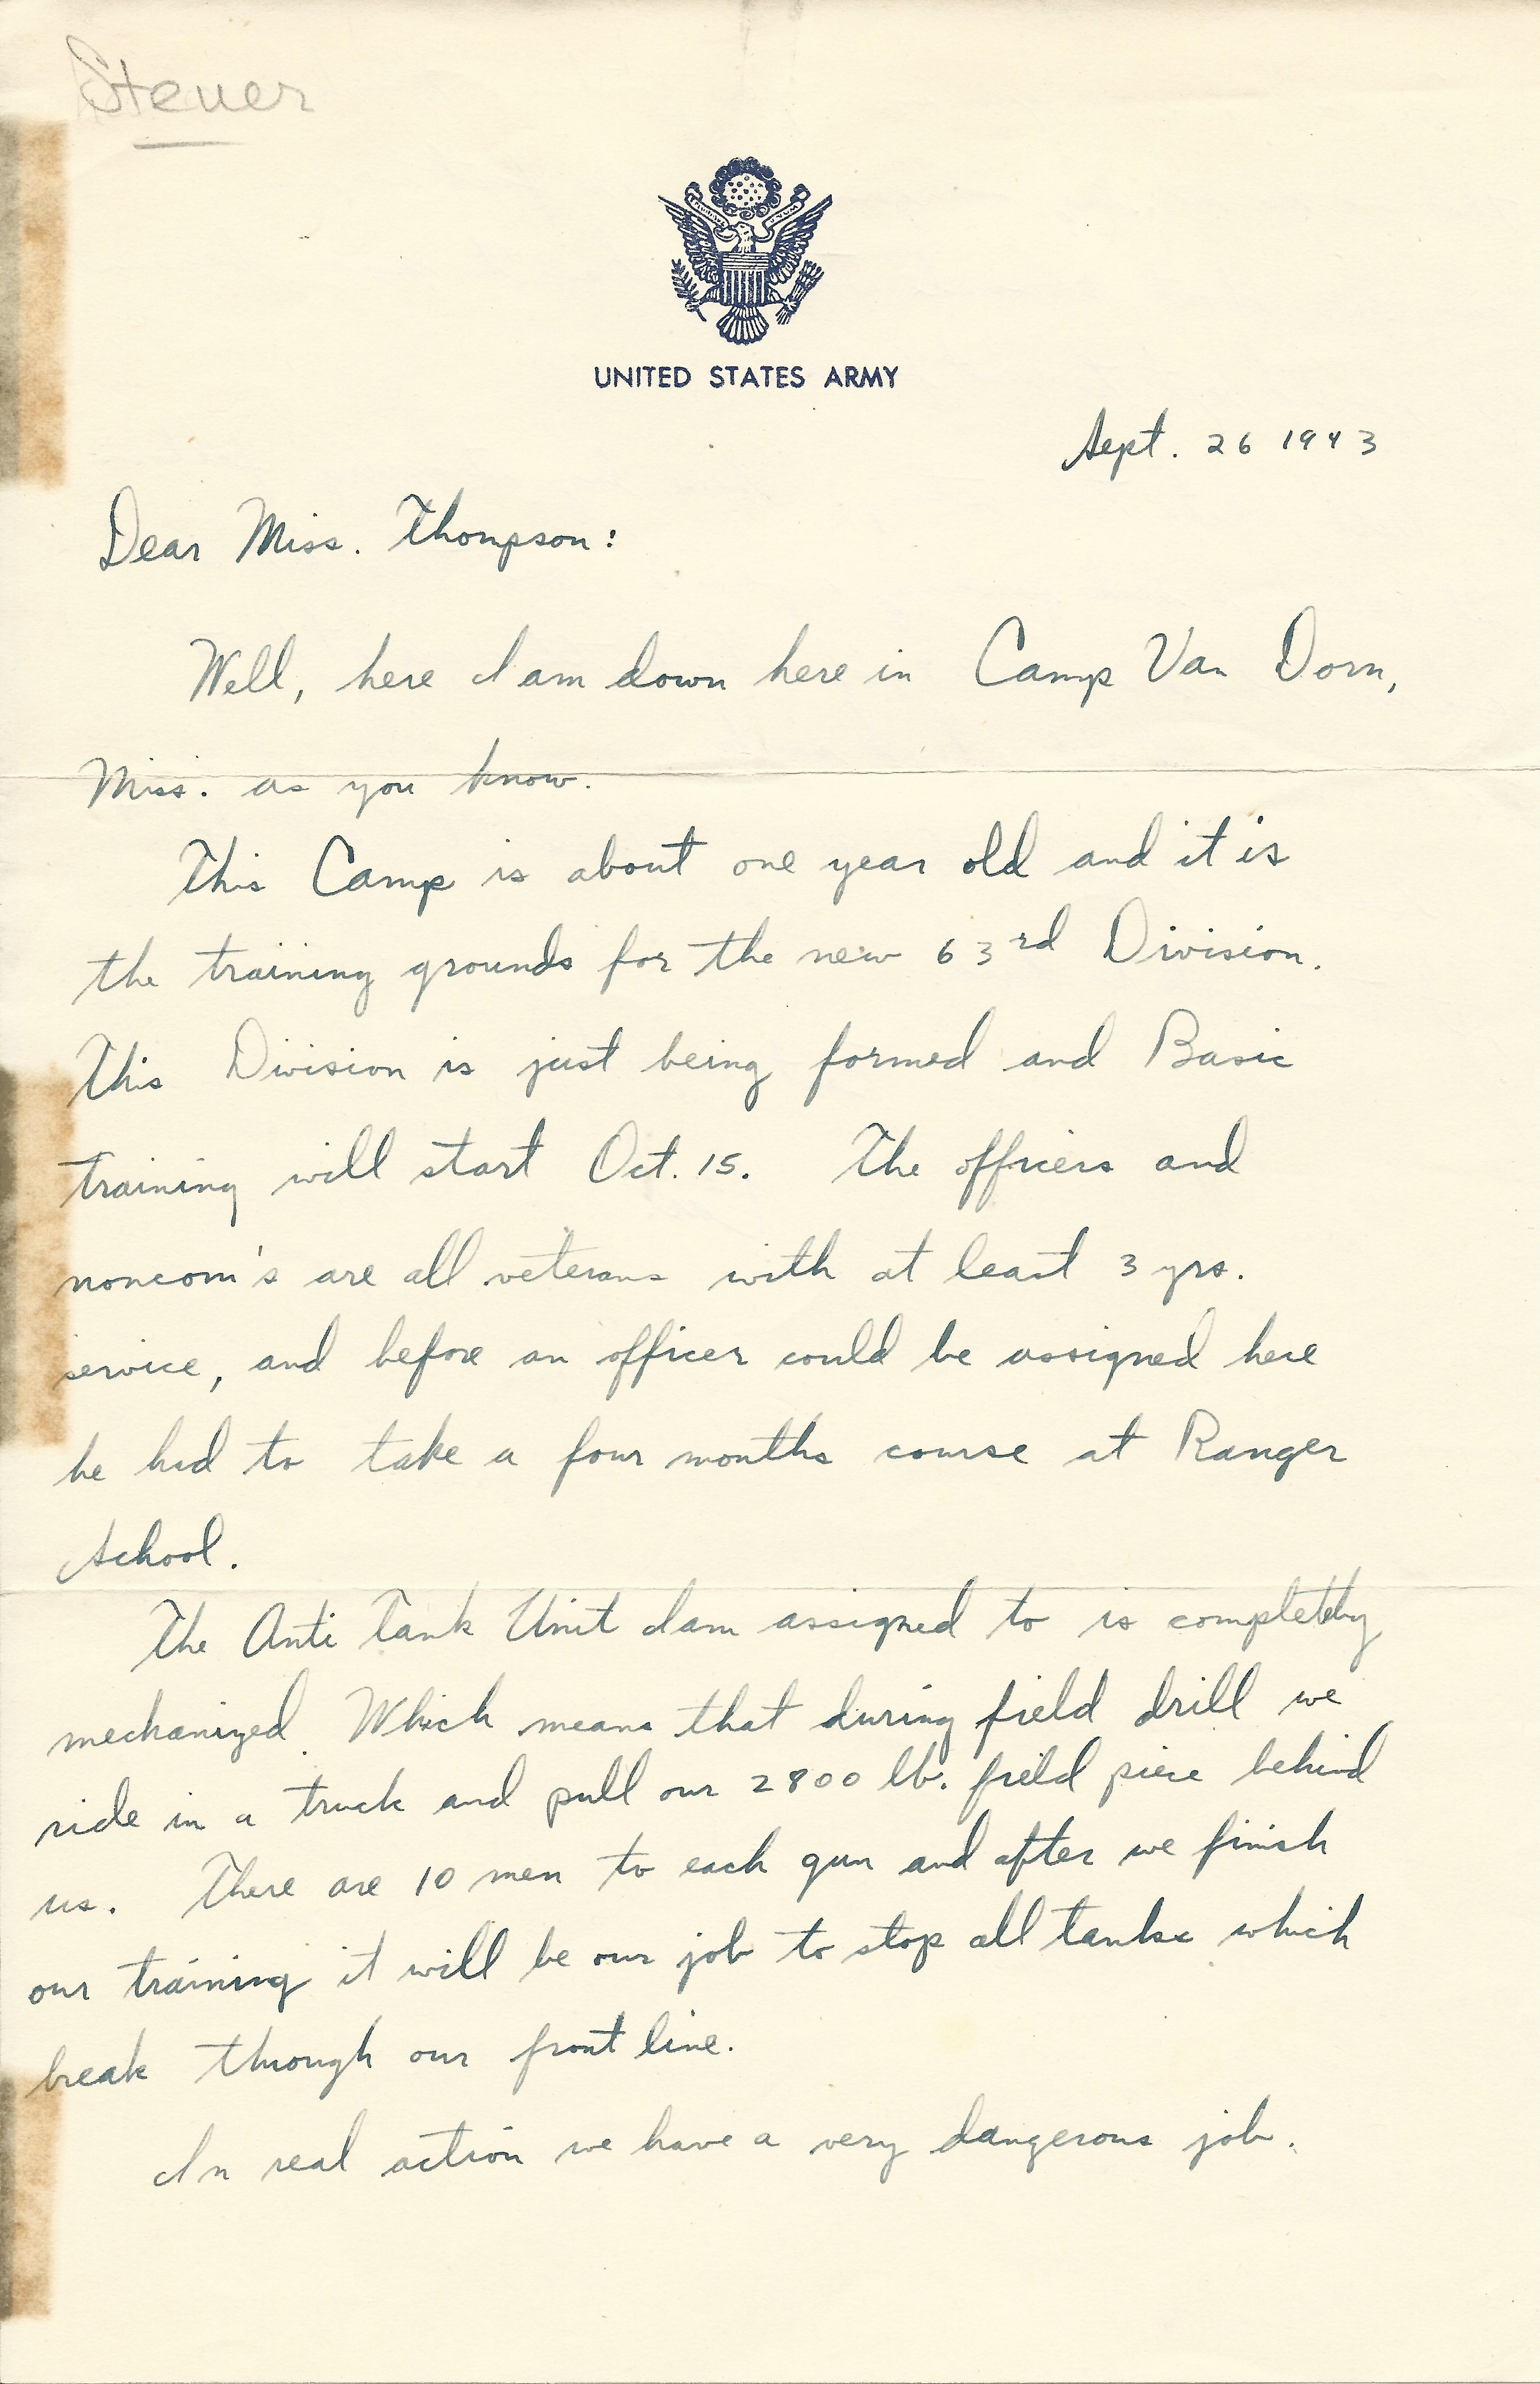 Steuer
UNITED STATES ARMY
Sept. 26 1943
Dear Miss. Thompson:
Well, here I am down here in Camp Van Dorn,
Miss. as you know.
This Camp is about one year old and it is
the training grounds for the new 63rd Division.
This Division is just being formed and Basic
training will start Oct. 15. The officers and
noncom's are all veterans with at least 3 yrs.
service, and before an officer could be assigned here
he had to take a four months course at Ranger
School.
The Anti Tank Unit I am assigned to is completely
mechanized. Which means that during field drill we
ride in a truck and pull our 2800 lb. field piece behind
us. There are 10 men to each gun and after we finish
our training it will be our job to stop all tanks which
break through our front line.
In real action we have a very dangerous job.